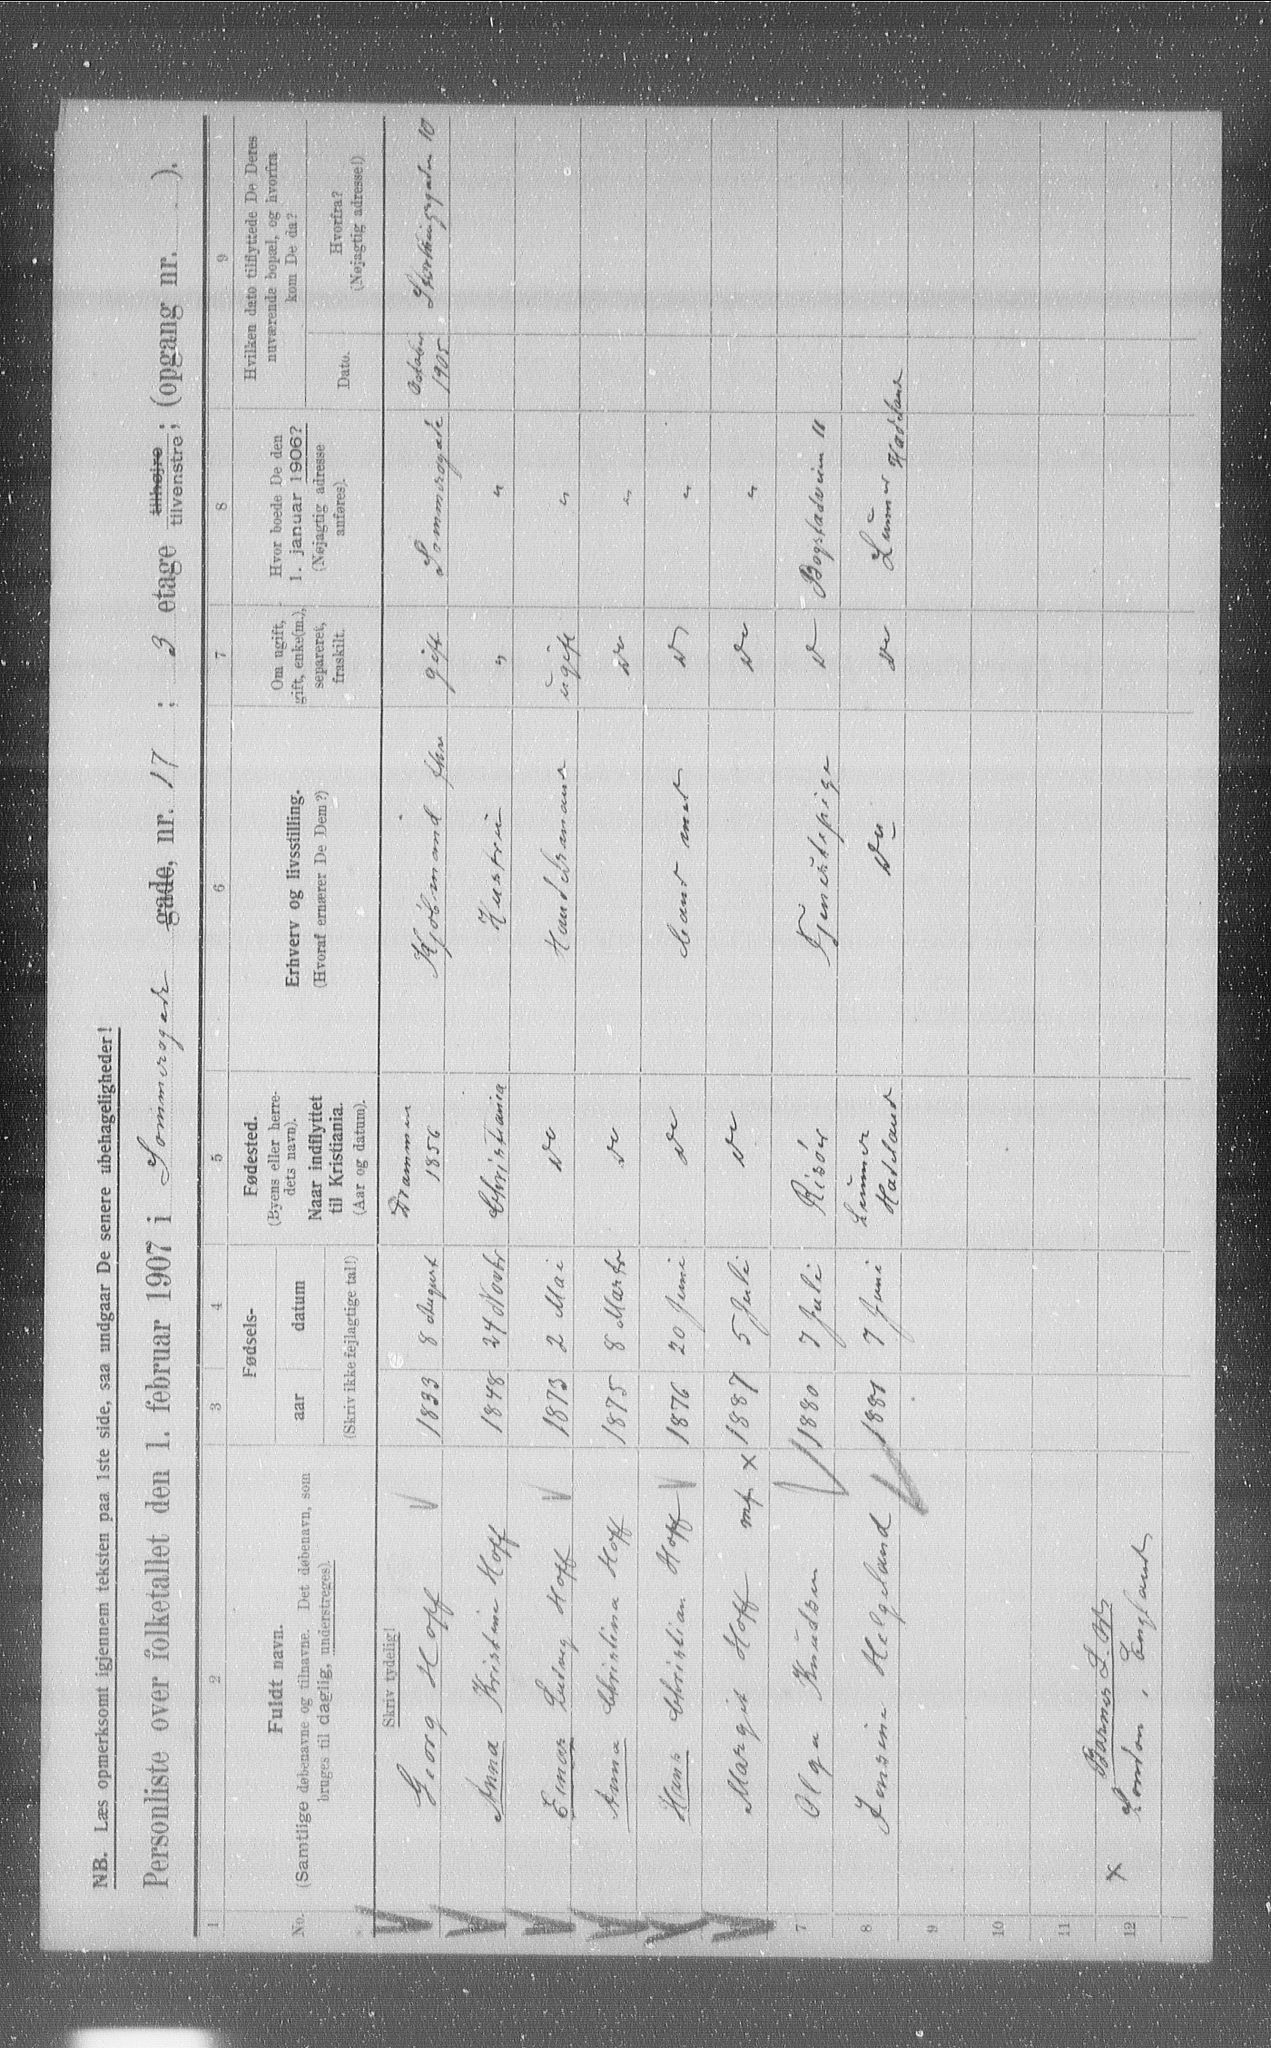 NB. Læs opmerksomt igjennem teksten paa 1ste side, saa undgaar De senere ubehageligheder!
Personliste over folketallet den 1. februar 1907 i Sommerogade gade, nr. 17 ; 3 etage tilhøjre tilvenstre; (opgang nr. ).
1 2 3 4 5 6 7 8 9
No.
Fuldt navn.
(Samtlige døbenavne og tilnavne. Det døbenavn, som
bruges til daglig, understreges).
Fødsels-
aar datum
(Skriv ikke fejlagtige tal!)
Fødested.
(Byens eller herre-
dets navn).
Naar indflyttet
til Kristiania.
(Aar og datum).
Erhverv og livsstilling.
(Hvoraf ernærer De Dem?)
Om ugift,
gift, enke(m.),
separeret,
fraskilt.
Hvor boede De den
1. januar 1906?
(Nøjagtig adresse
anføres).
Hvilken dato tilflyttede De Deres
nuværende bopæl, og hvorfra
kom De da?
Dato.
Hvorfra?
(Nøjagtig adresse!)
Skriv tydelig!
Georg Hoff 1833 8 August Drammen 1856 Kjøbmand fhv gift Sommerogade October 1905 Storthingsgaden 10
Anna Kristine Hoff 1848 24 Novbr Christiania Hustru " "
Einar Ludvig Hoff 1873 2 Mai Do Handelsmand ugift "
Anna Christina Hoff 1875 8 Marts Do Do "
Hans Christian Hoff 1876 20 Juni Do Cand med Do "
Margit Hoff mp x 1887 5 Juli Do Do "
7 Olga Knudsen 1880 7 Juli Risör Tjenestepige Do Bogstadveien 11
8 Jensine Helgeland 1881 7 Juni Lunner Hadeland Do Do Lunner Hadeland
9
10
11
12
x Barnes S. W.
London, England